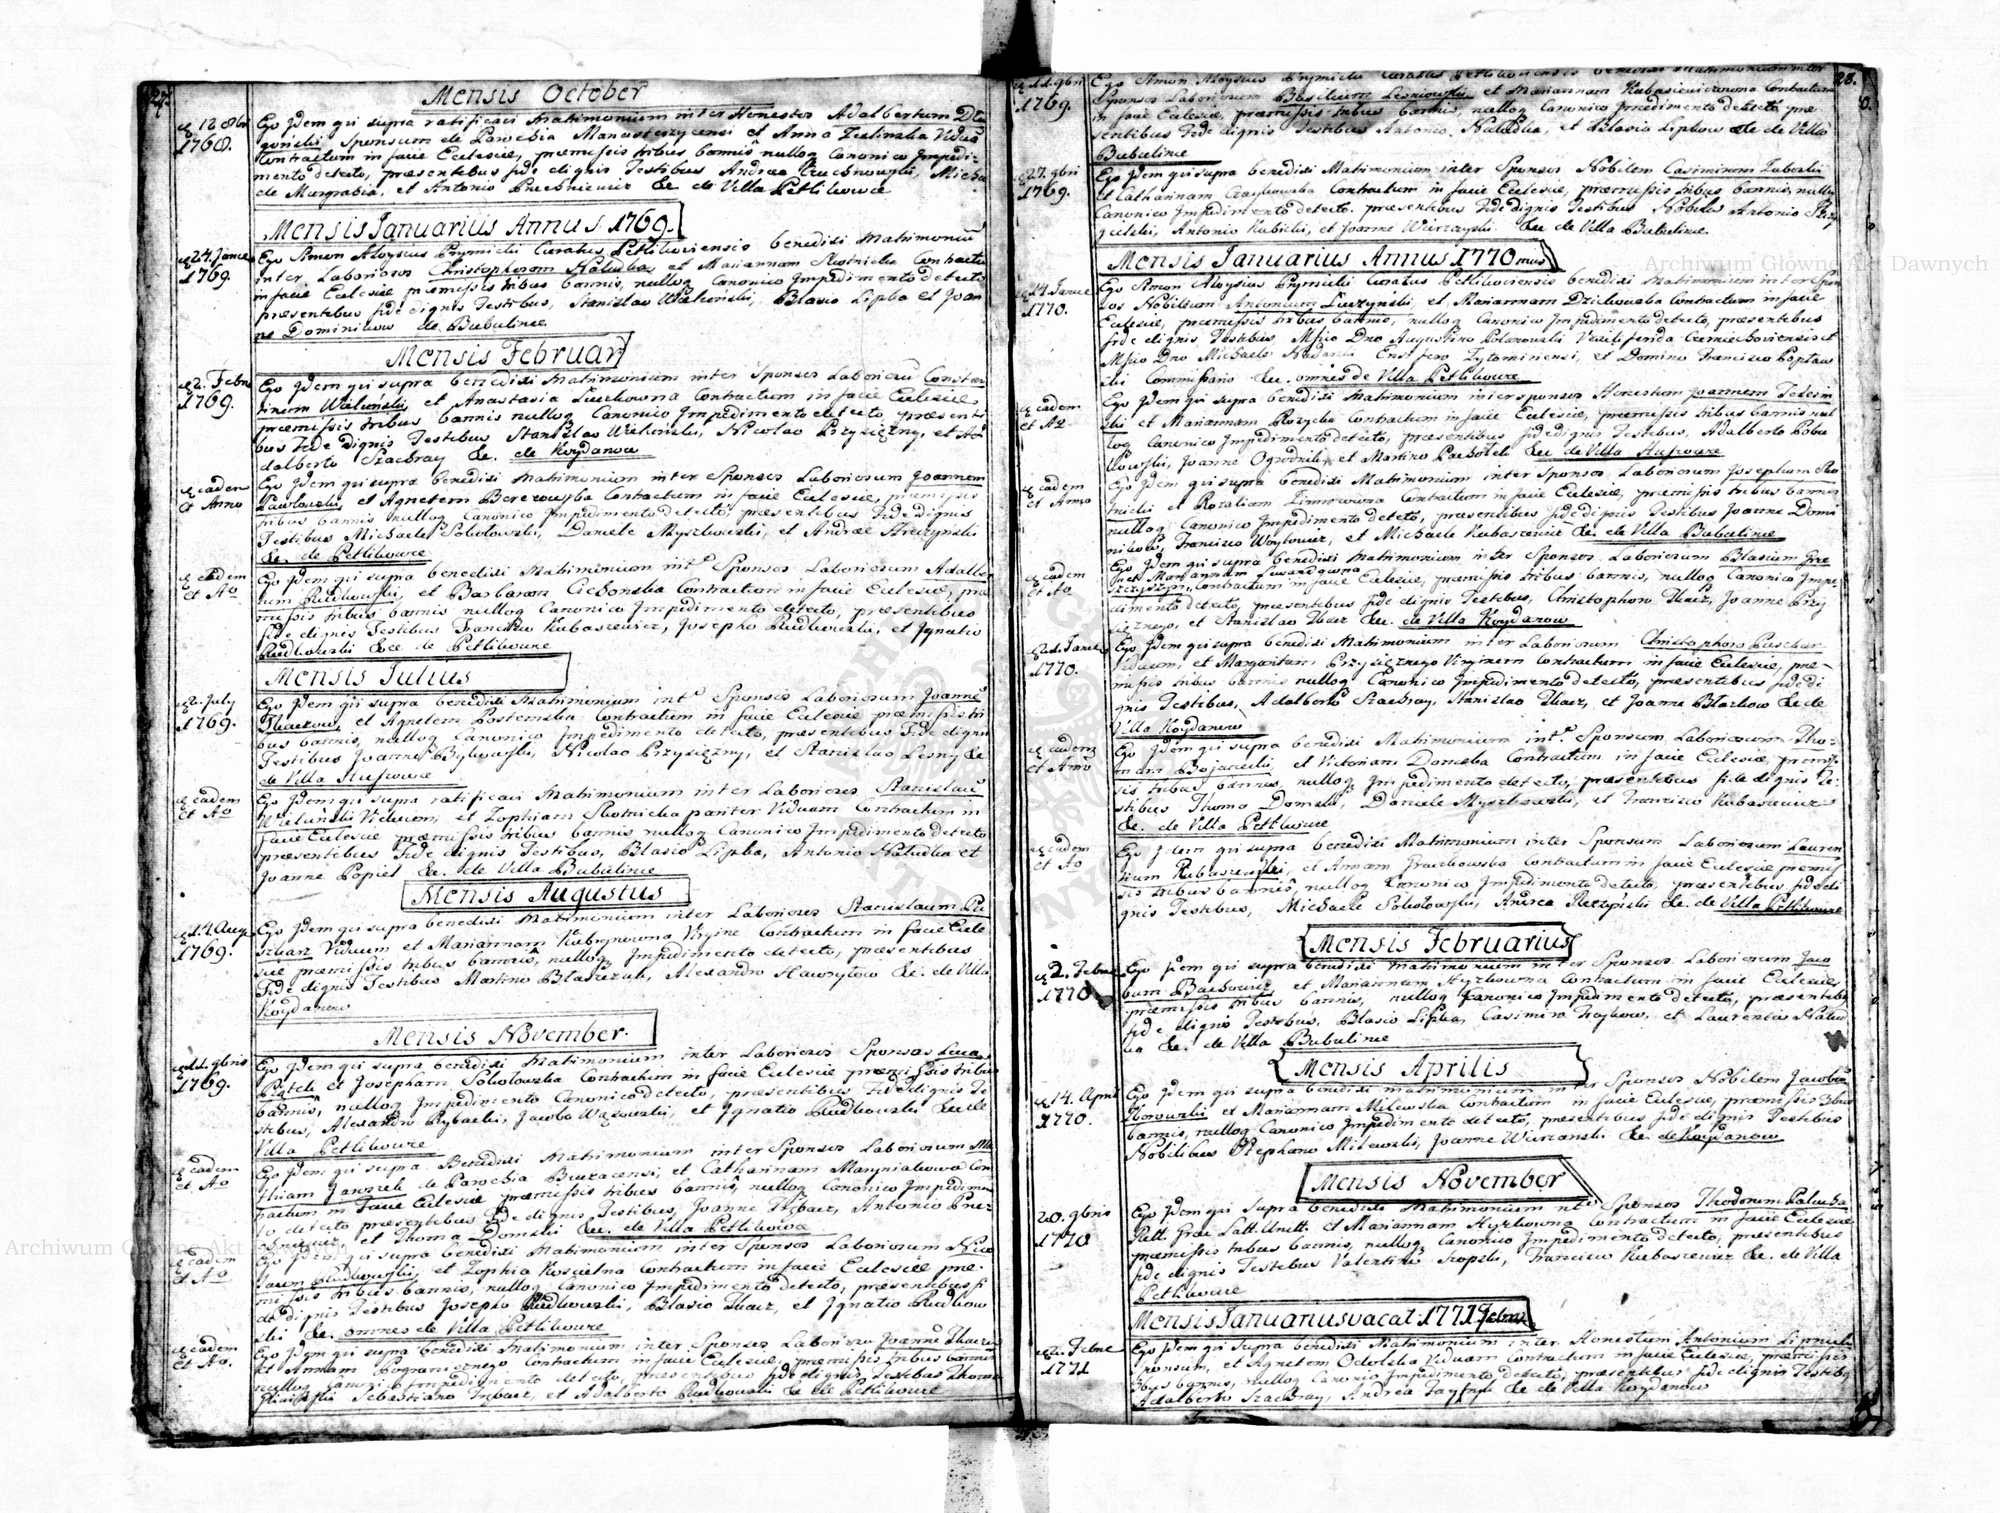 27.
Mensis October
d 12 8bri
1768.
Ego Idem qui supra ratificavi Matrimonium inter Honestos Adalbertum
Sponsum de Parochia Manasterzycensi et Anna Zielinska Viduã
Contractum in facie Ecclesiæ, præmissis tribus bannis nulloq Canonico Impedi-
mento detecto, præsentibus fide dignis Testibus Andrea
de Murgrabia, et Antonio Puchniewicz &c de Villa Petlikowce
Mensis Januarius Annus 1769.
d 24. Janua
1769.
Ego Simon Aloysius Prymicki Curatus Petlikoviensis benedixi Matrimoniũ
inter Laboriosos Christophorum Naludka, et Mariannam Skotnicka Contractũ
in facie Ecclesiæ præmissis tribus bannis, nulloq Canonico Impedimento detecto
præsentibus fide dignis Testibus, Stanislao Wieloński, Blasio Lipka et Joan
ne Dominikow de Bubulince
Mensis Februar
d 2. Febru
1769.
Ego Idem qui supra benedixi Matrimonium inter Sponsos Laboriosũ Constan
tinum Wieloński, et Anastasia Luczkowna Contractum in facie Ecclesiæ,
præmissis tribus bannis nulloq Canonico Impedimento detecto præsenti
bus fide dignis Testibus Stanislao Wieloński, Nicolao Przysiężny, et A
dalberto Szachray &c. de Koydanow
d eadem
et Anno
Ego Idem qui supra benedixi Matrimonium inter Sponsos Laboriosum Joannem
Pawłowski, et Agnetem Berezowska Contractum in facie Ecclesiæ, præmissis
tribus bannis nulloq Canonico Impedimento detecto, præsentibus fide dignis
Testibus Michaele Sokołowski, Daniele Myszkowski, et Andrea
&c. de Petlikowce
d eadem
et Ao
Ego Idem qui supra benedixi Matrimonium intr Sponsos Laboriosum Adalber
tum Rudkowski, et Barbaram Cichonska Contractum in facie Ecclesiæ, præ
missis tribus bannis nulloq Canonico Impedimento detecto, præsentibus
fide dignis Testibus Francisco Kubaszewicz, Josepho Rudkowski, et Ignatio
Rudkowski &c de Petlikowce
Mensis Julius
d 2. July
1769.
Ego Idem qui supra benedixi Matrimonium intr Sponsos Laboriosum Joannẽ
Tkaczow, et Agnetem Postemska Contractum in facie Ecclesiæ præmissis tri
bus bannis, nulloq Canonico Impedimento detecto, præsentibus fide dignis
Testibus Joanne Bykowski, Nicolao Przysiężny, et Stanislao Lesny &c
de Villa
d eadem
et Ao
Ego Idem qui supra ratificavi Matrimonium inter Laboriosos Stanislaũ
Wieluński Viduum, et Zophiam Skotnicka pariter Viduam Contractum in
facie Ecclesiæ præmissis tribus bannis nulloq Canonico Impedimento detecto
præsentibus fide dignis Testibus, Blasio Lipka, Antonio Naludka et
Joanne Popiel &c. de Villa Bubulince
Mensis Augustus
d 14 Aug
1769.
Ego Idem qui supra benedixi Matrimonium inter Laboriosos Stanislaum Pu
szkarz Viduum et Mariannam Kubrynowna Virgine Contractum in facie Eccle
siæ præmissis tribus bannis, nulloq Impedimento detecto, præsentibus
fide dignis Testibus Martino Błaszczuk, Alexandro Hawryłow &c. de Villa
Koydanow
Mensis November.
d 11. 9bris
1769.
Ego Idem qui supra benedixi Matrimonium inter Laboriosos Sponsos Lucã
et Josepham Sokołowska Contractum in facie Ecclesiæ præmissis tribus
bannis, nulloq Impedimento Canonico detecto, præsentibus fide dignis Te
stibus, Alexandro Rybacki, Jacobo Wąsowski, et Ignatio Rudkowski &c de
Villa Petlikowce
d eadem
et Ao
Ego Idem qui supra Benedixi Matrimonium inter Sponsos Laboriosum Ma
thiam Jaworek de Parochia Buczacensi, et Catharinam Marynialkowa Con
tractum in facie Ecclesiæ præmissis tribus bannis, nulloq Canonico Impedimen
to detecto præsentibus fide dignis Testibus, Joanne Tkacz, Antonio
et Thoma Domski &c. de Villa Petlikowce
d eadem
et Ao
Ego Idem qui supra benedixi Matrimonium inter Sponsos Laboriosum Nico
laum Rudkowski, et Zophia Koscielna Contractum in facie Ecclesiæ præ-
missis tribus bannis, nulloq Canonico Impedimento detecto, præsentibus fi
de dignis Testibus Josepho Rudkowski, Blasio Tkacz, et Ignatio Rudkow
ski &c. omnes de Villa Petlikowce
d eadem
et Ao.
Ego Idem qui supra benedixi Matrimonium inter Sponsos Laboriosum Joannẽ
et Annam Pograniczneÿo Contractum in facie Ecclesiæ, præmissis tribus bannis
nulloq Canonico Impedimento detecto, præsentibus fide dignis Testibus Thoma
Sebastiano Tkacz, et Adalberto Rudkowski &c de Petlikowce
28.
d 11. 9bri
1769.
Ego Simon Aloysius Prymicki Curatus Petlikoviensis benedixi Matrimonium inter
Sponsos Laboriosum Basilium Lesniowski et Mariannam Kubasiewiczowna Contractum
in facie Ecclesiæ, præmissis tribus bannis, nulloq Canonico Impedimento detecto, præ
sentibus fide dignis Testibus Antonio Naludka, et Blasio Lipkow &c de Villa
Bubulince
d 27. 9bri
1769.
Ego Idem qui supra benedixi Matrimonium inter Sponsos Nobilem Casimirum
et Catharinam Czaykowska Contractum in facie Ecclesiæ, præmissis tribus bannis, nulloq
Canonico Impedimento detecto. præsentibus fide dignis Testibus Nobile Antonio
Antonio Kubicki, et Joanne &c de Villa Bubulince.
Mensis Januarius Annus 1770mus
d 14. Janua
1770.
Ego Simon Aloysius Prymicki Curatus Petlikoviensis benedixi Matrimonium inter Spon
sos Nobilium Antonium Luczynski, et Mariannam Dzikowska Contractum in facie
Ecclesiæ, præmissis tribus bannis, nulloq Canonico Impedimento detecto, præsentibus
fide dignis Testibus, Mfico Dno Augustino Polanowski Vexilliferida Czerniechoviensi et
Mfico Dno Michaele Ensifero Zytomiriensi, et Domino Francisco Popław
ski Commissario &c. omnes de Villa Petlikowce
d eadem
et Ao
Ego Idem qui supra benedixi Matrimonium inter sponsos Honestum Joannem
et Mariannam Rozycka Contractum in facie Ecclesiæ, præmissis tribus bannis nul
loq Canonico Impedimento detecto, præsentibus fide dignis Testibus, Adalberto
Joanne Ogrodnik, et Martino Pachołek &c de Villa
d eadem
et Anno
Ego Idem qui supra benedixi Matrimonium inter Sponsos Laboriosum Josephum
et Rozaliam Contractum in facie Ecclesiæ, præmissis tribus bannis
nulloq Canonico Impedimento detecto, præsentibus fide dignis Testibus Joanne Domi
nikow, Francisco Woytowicz, et Michaele Kubasiewicz &c. de Villa Bubulince
d eadem
et Ao
Ego Idem qui supra benedixi Matrimonium inter Sponsos Laboriosum Blasium
et Mariannam
Contractum in facie Ecclesiæ, præmissis tribus bannis, nulloq Canonico Impe-
dimento detecto, præsentibus fide dignis Testibus, Christophoro Tkacz, Joanne Przy
siężnego, et Stanislao Tkacz &c. de Villa Koydanow
d 21. Janua
1770.
Ego Idem qui supra benedixi Matrimonium inter Laboriosum Christophorũ Puszkar
Viduum, et Margaritam Przysięznego Virginem Contractum in facie Ecclesiæ, præ-
missis tribus bannis nulloq Canonico Impedimento detecto, præsentibus fide di
gnis Testibus, Adalberto Szachray, Stanislao Tkacz, et Joanne Blazkow &c de
Villa Koydanow
d eadem
et Anno
Ego Idem qui supra benedixi Matrimonium intr Sponsum Laboriosum Tho-
mam Bojarecki, et Victoriam Domska Contractum in facie Ecclesiæ, præmis-
sis tribus bannis, nulloq Impedimento detecto, præsentibus fide dignis Te-
stibus Thoma Domski, Daniele Myszkowski, et Francisco Kubasiewicz
&c. de Villa Petlikowce
d eadem
et Ao
Ego Idem qui supra benedixi Matrimonium inter Sponsum Laboriosum Lauren
tium Kubaszewski, et Annam Graczkowska Contractum in facie Ecclesiæ præmis
sis tribus bannis, nulloq Canonico Impedimento detecto, præsentibus fide di
gnis Testibus, Michaele Sokołowski, Andrea &c. de Villa Petlikowce
Mensis Februarius
d 2. Febru
1770
Ego Idem qui supra benedixi Matrimonium inter Sponsos Laboriosum Jaco
bum Backowicz, et Mariannam Hyrkowna Contractum in facie Ecclesiæ
præmissis tribus bannis, nulloq Canonico Impedimento detecto, præsentibus
fide dignis Testibus, Blasio Lipka, Casimiro et Laurentio Nalud
ka &c. de Villa Bubulince
Mensis Aprilis
d 14. April
1770.
Ego Idem qui supra benedixi Matrimonium inter Sponsos Nobilem Jacobũ
et Mariannam Milewska Contractum in facie Ecclesiæ, præmissis 3bus
bannis, nulloq Canonico Impedimento detecto, præsentibus fide dignis Testibus
Nobilibus Stephano Milewski, Joanne &c. de Koydanow
Mensis November
20. 9bris
1770
Ego Idem qui Supra benedixi Matrimonium intr Sponsos Theodorum
et Mariannam Hyrkowna Contractum in facie Ecclesiæ
præmissis tribus bannis, nulloq Canonico Impedimento detecto, præsentibus
fide dignis Testibus Valentino Francisco Kubaszewicz &c. de Villa
Petlikowce
Mensis Januarius vacat. 1771 Febru
d 2. Febru
1771
Ego Idem qui Supra benedixi Matrimonium inter Honestum Antonium
sponsum, et Agnetem Odolska Viduam Contractum in facie Ecclesiæ, præmissis
3bus bannis, nulloq Canonico Impedimento detecto, præsentibus fide dignis Testibus
Adalberto Szachray, Andrea &c de Villa Koydanow
Archiwum Główne Akt Dawnych
Archiwum Główne Akt Dawnych